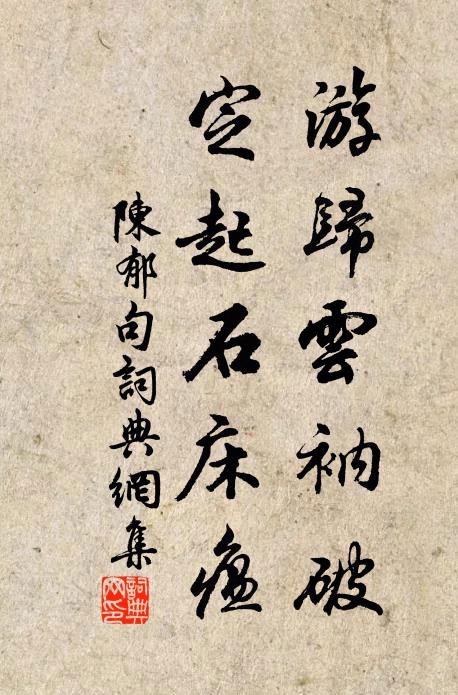 游歸雲衲破
定起石床溫
陳郁句詞典網集
詞典
网印